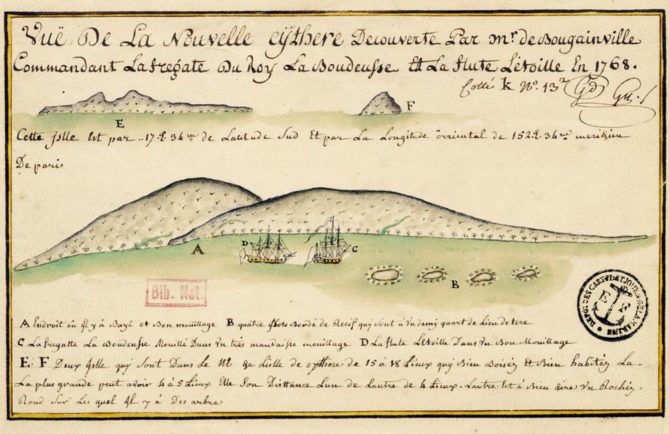 Vuë De La Nouvelle cÿthere Decouverte Par mr. de Bougainville
Commandant La fregate Du Roy La Boudeusse Et La flute Létoille En 1768.
Cotté k No. 13
E
F
Cette jslle Est par 17 34 de Latitude Sud Et par La Longitude orriental de 152 34 meridien
De paris
A
D
C
B
Bib. Nat.
A Lindroit où Jl y à Baye et Bon mouillage B. quatre jslots Bordé de Recif qui sont à Un demi quart de Lieu de terre
C La fregatte La Boudeusse Mouillé Dans Un tres mauvaisse mouillage D La flute Létoille Dans Un Bon Mouillage
E. F Deux jslle qui sont Dans Le de Lislle de cythere de 15 à 18 Lieux qui Bien Boisés et Bien habités La
La plus grande peut avoir 4 à 5 Lieux Elle son Disttance Lun de Lautre de 4 Lieux. Lautre Est à Bien dire Un Rochés
Rond Sur Les quel Jl y à Des arbre